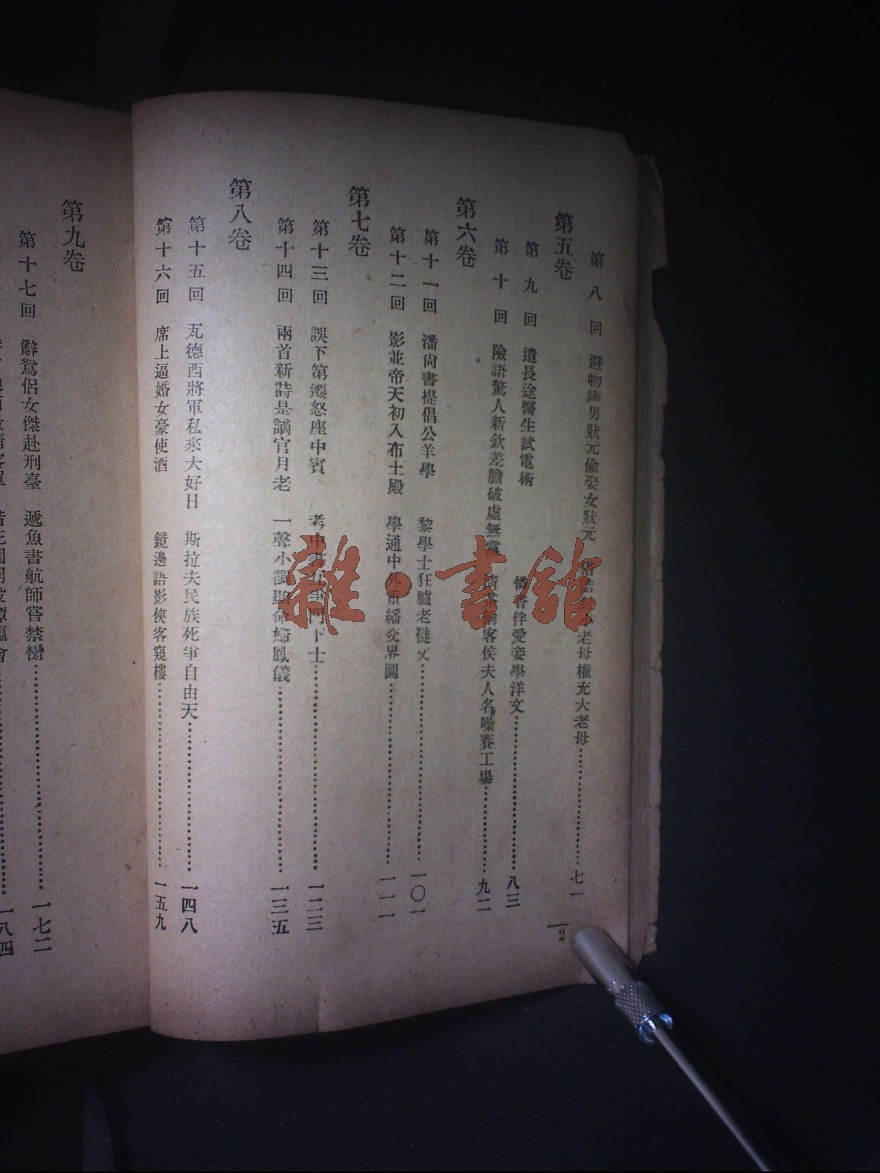 第八回 避物議男狀元偷娶女狀元 小老母權充大老母……七一
第五卷
第九回 遣長途醫生試電術 憐香伴愛妾學洋文……八三
第十回 險語驚人新欽差膽破虛無黨 客侯夫人名噪賽工場……九二
第六卷
第十一回 潘尚書提倡公羊學 黎學士狂臚老韃文……一〇一
第十二回 影並帝天初入布士殿 學通中外重繙交界圖……一一一
第七卷
第十三回 誤下第遷怒座中賓 考中 門下士……一二三
第十四回 兩首新詩是謫官月老 一聲小調 命婦鳳儀……一三五
第八卷
第十五回 瓦德西將軍私來大好日 斯拉夫民族死爭自由天……一四八
第十六回 席上逼婚女豪使酒 鏡邊語影俠客窺樓……一五九
第九卷
第十七回 辭鴛侶女傑赴刑臺 遞魚書航師嘗禁臠……一七二
一八四
雜·書館